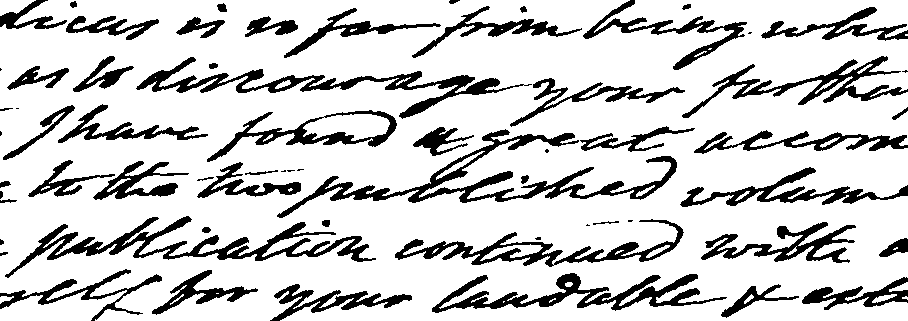 dicus is so far from being wha
as to discourage your further
I have found a great accom
to the two published volume
publication continued with a
self for your laudable & exte